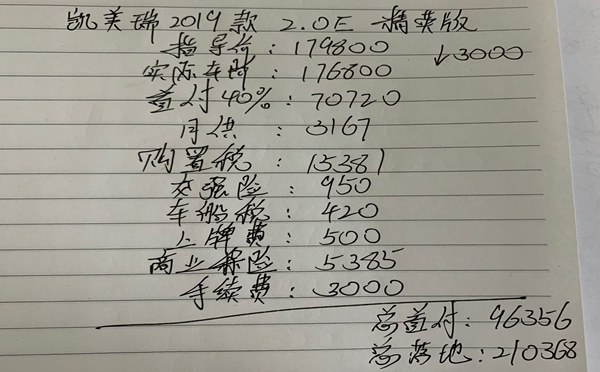 凯美瑞 2019 款 2.0E 精英版
指导价：179800 ↓3000
实际车价：176800
首付40%：70720
月供：3167
购置税：15381
交强险：950
车船税：420
上牌费：500
商业保险：5385
手续费：3000
总首付：96356
总落地：210368